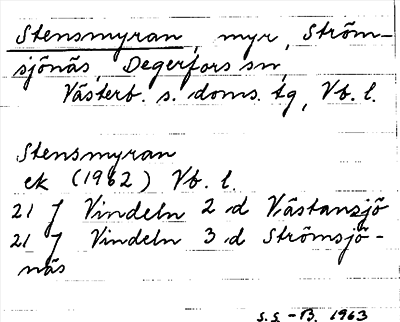 Stensmyran, myr, Ström-
sjönäs, Degerfors sn,
Västerb. s. doms. tg, Vb. l.
Stensmyran
ek (1962) Vb. l.
21 J Vindeln 2 d Västansjö
21 J Vindeln 3 d Strömsjö-
näs
S.S. - B. 1963